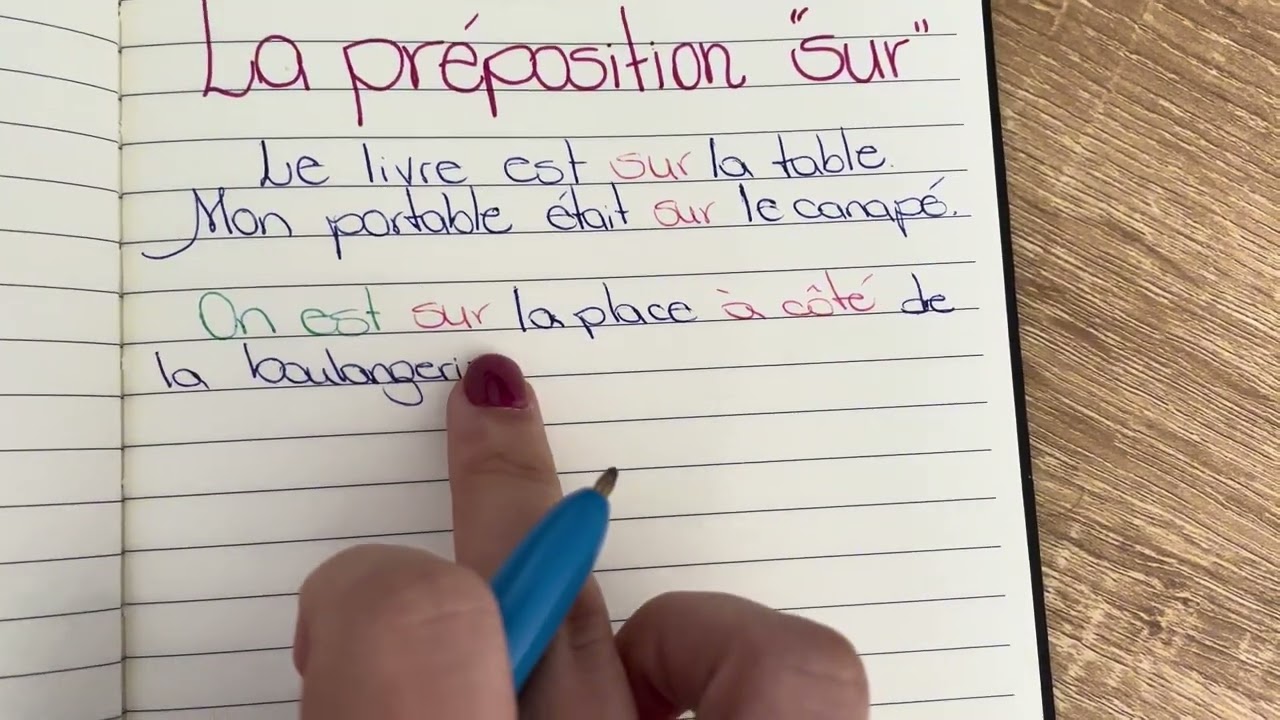 La préposition "sur"
Le livre est sur la table.
Mon portable était sur le canapé.
On est sur la place à côté de
la boulangeri